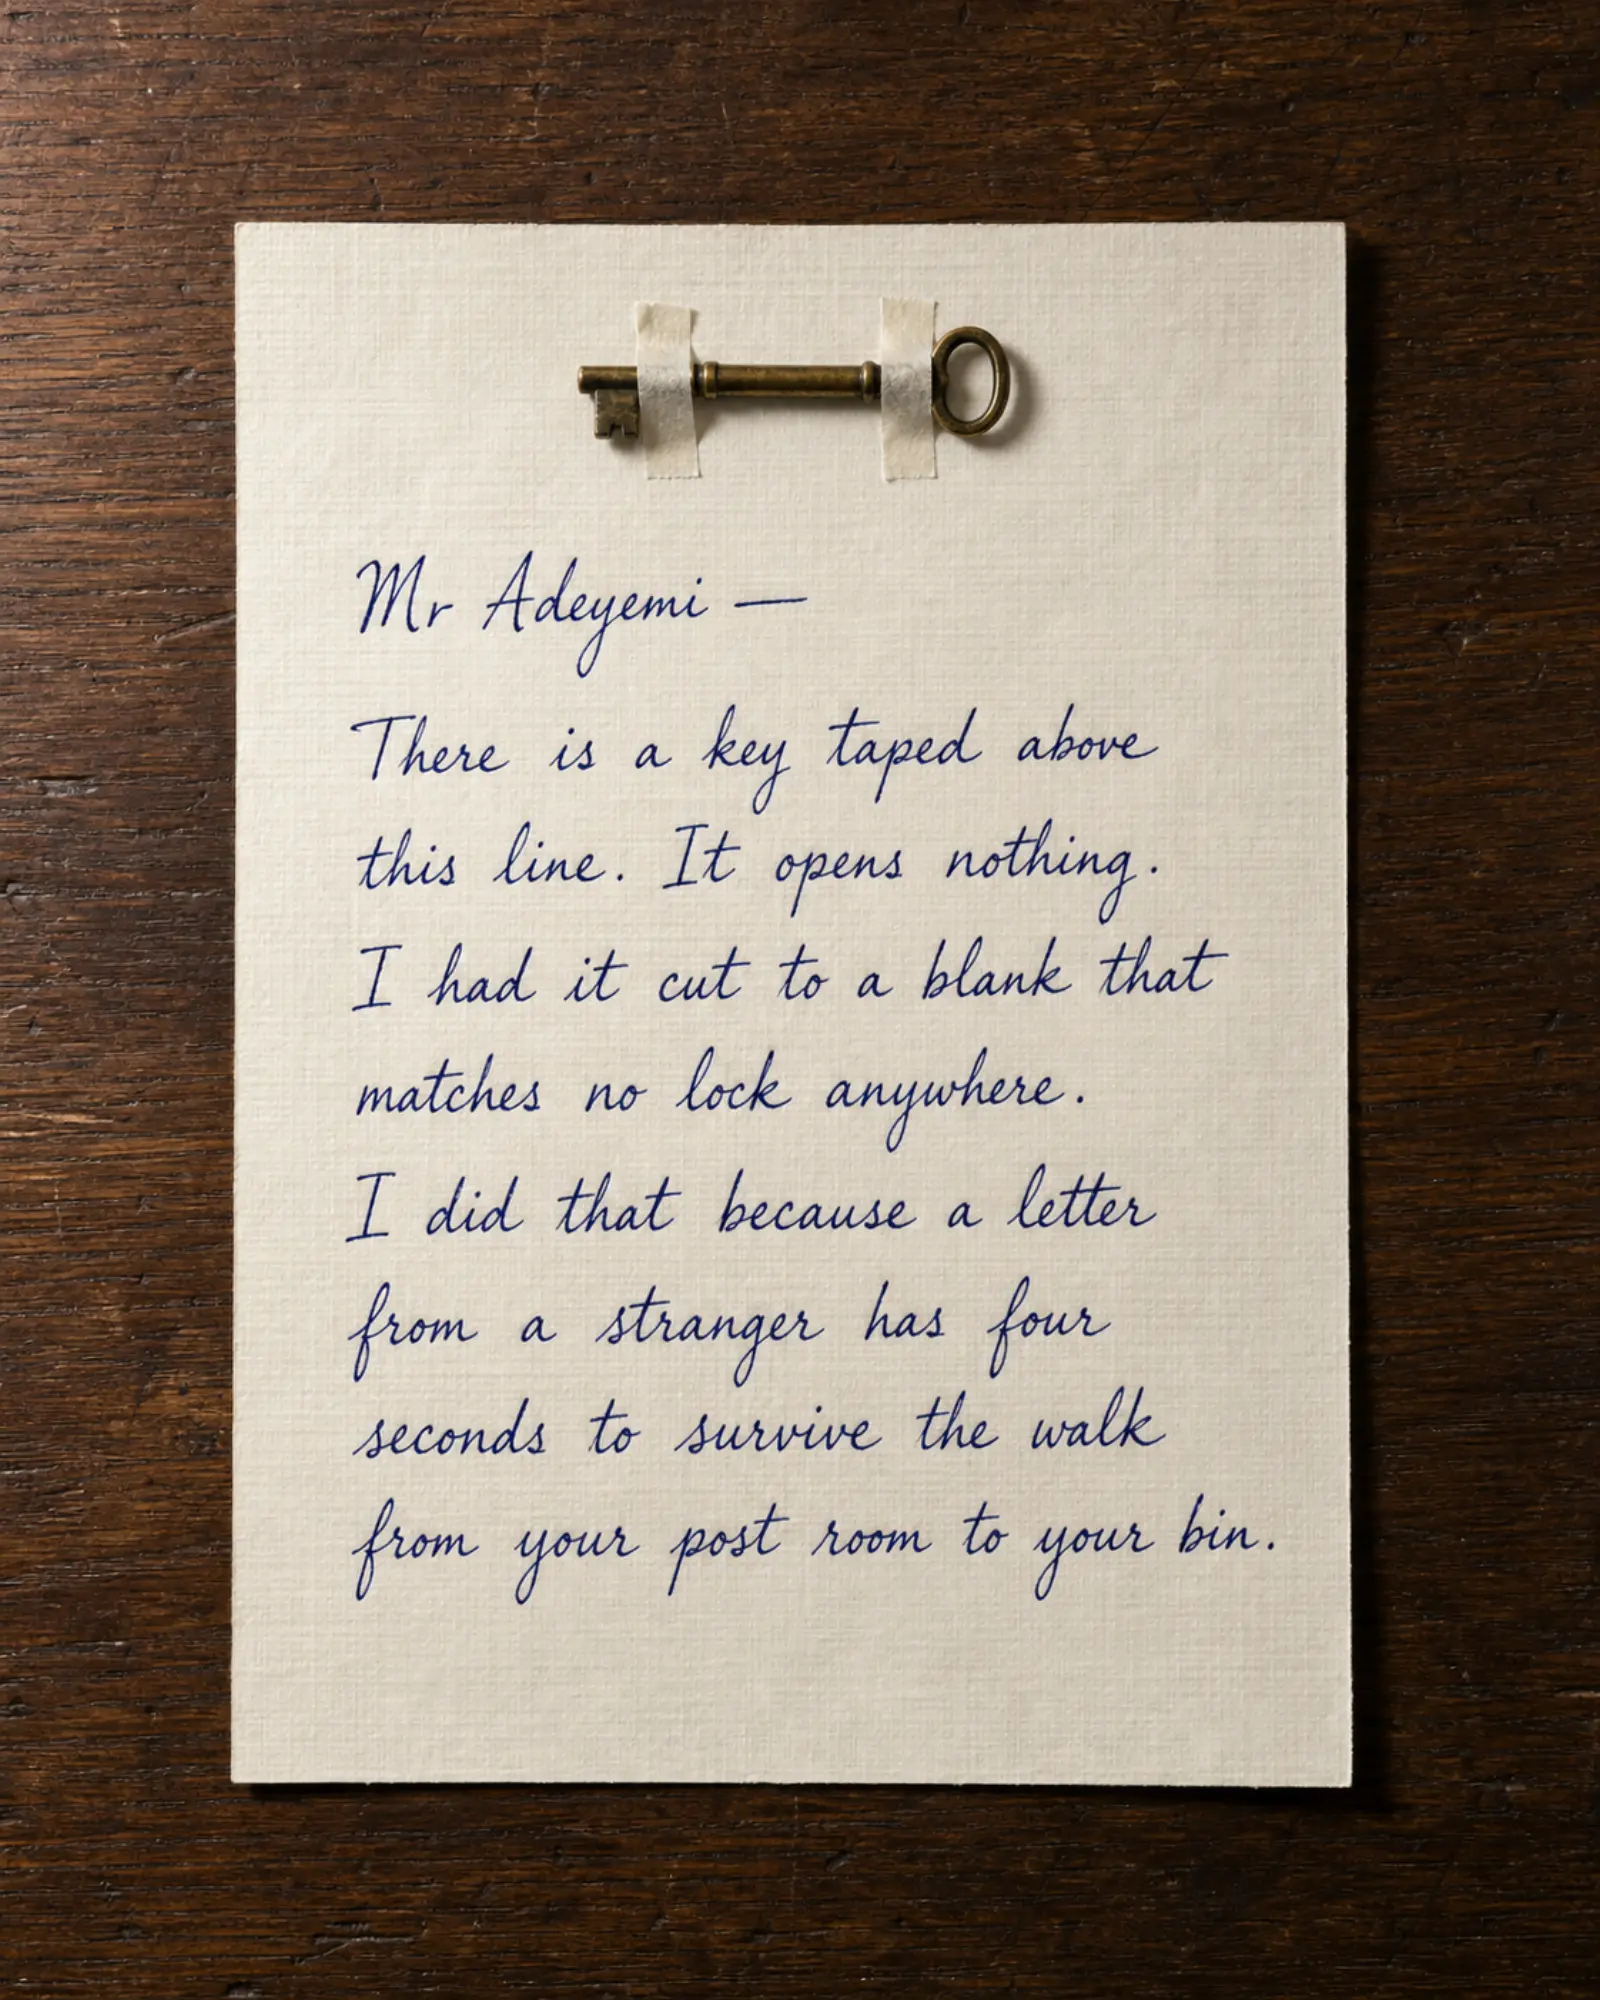 Mr Adeyemi —
There is a key taped above
this line. It opens nothing.
I had it cut to a blank that
matches no lock anywhere.
I did that because a letter
from a stranger has four
seconds to survive the walk
from your post room to your bin.